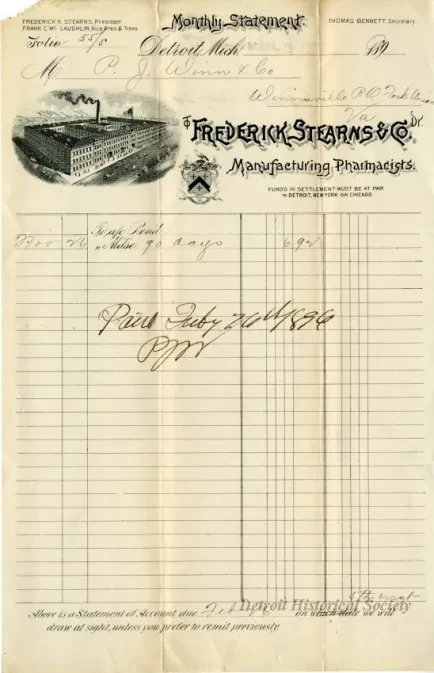 FREDERICK K. STEARNS, President
FRANK C. Mc LAUGHLIN, Vice Pres. & Treas.
Monthly Statement.
THOMAS BENNETT, Secretary
Folio 55/5
Detroit, Mich. 189
M P. J. Winn & Co
Winnsville P.O. Fork Union
Va
To FREDERICK STEARNS & CO. Dr.
Manufacturing Pharmacists.
FUNDS IN SETTLEMENT MUST BE AT PAR
IN DETROIT, NEW YORK OR CHICAGO.
Nov 26 " Mdse 90 days 692
Paid July 26th 1896
PJW
Detroit Historical Society
Above is a Statement of Account due Feb on which date we will
draw at sight, unless you prefer to remit previously.